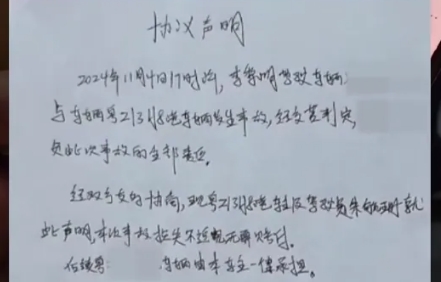 协议声明
2024年11月4日17时许,李黎明驾驶车辆
与车辆粤Z13H8港车辆发生事故,经交警判定,
负此次事故的全部责任。
经双方友好协商,现粤Z13H8港车主及驾驶员朱
此声明,本次事故损失不追究无需赔付。
后续粤 车辆由本车主一律承担。